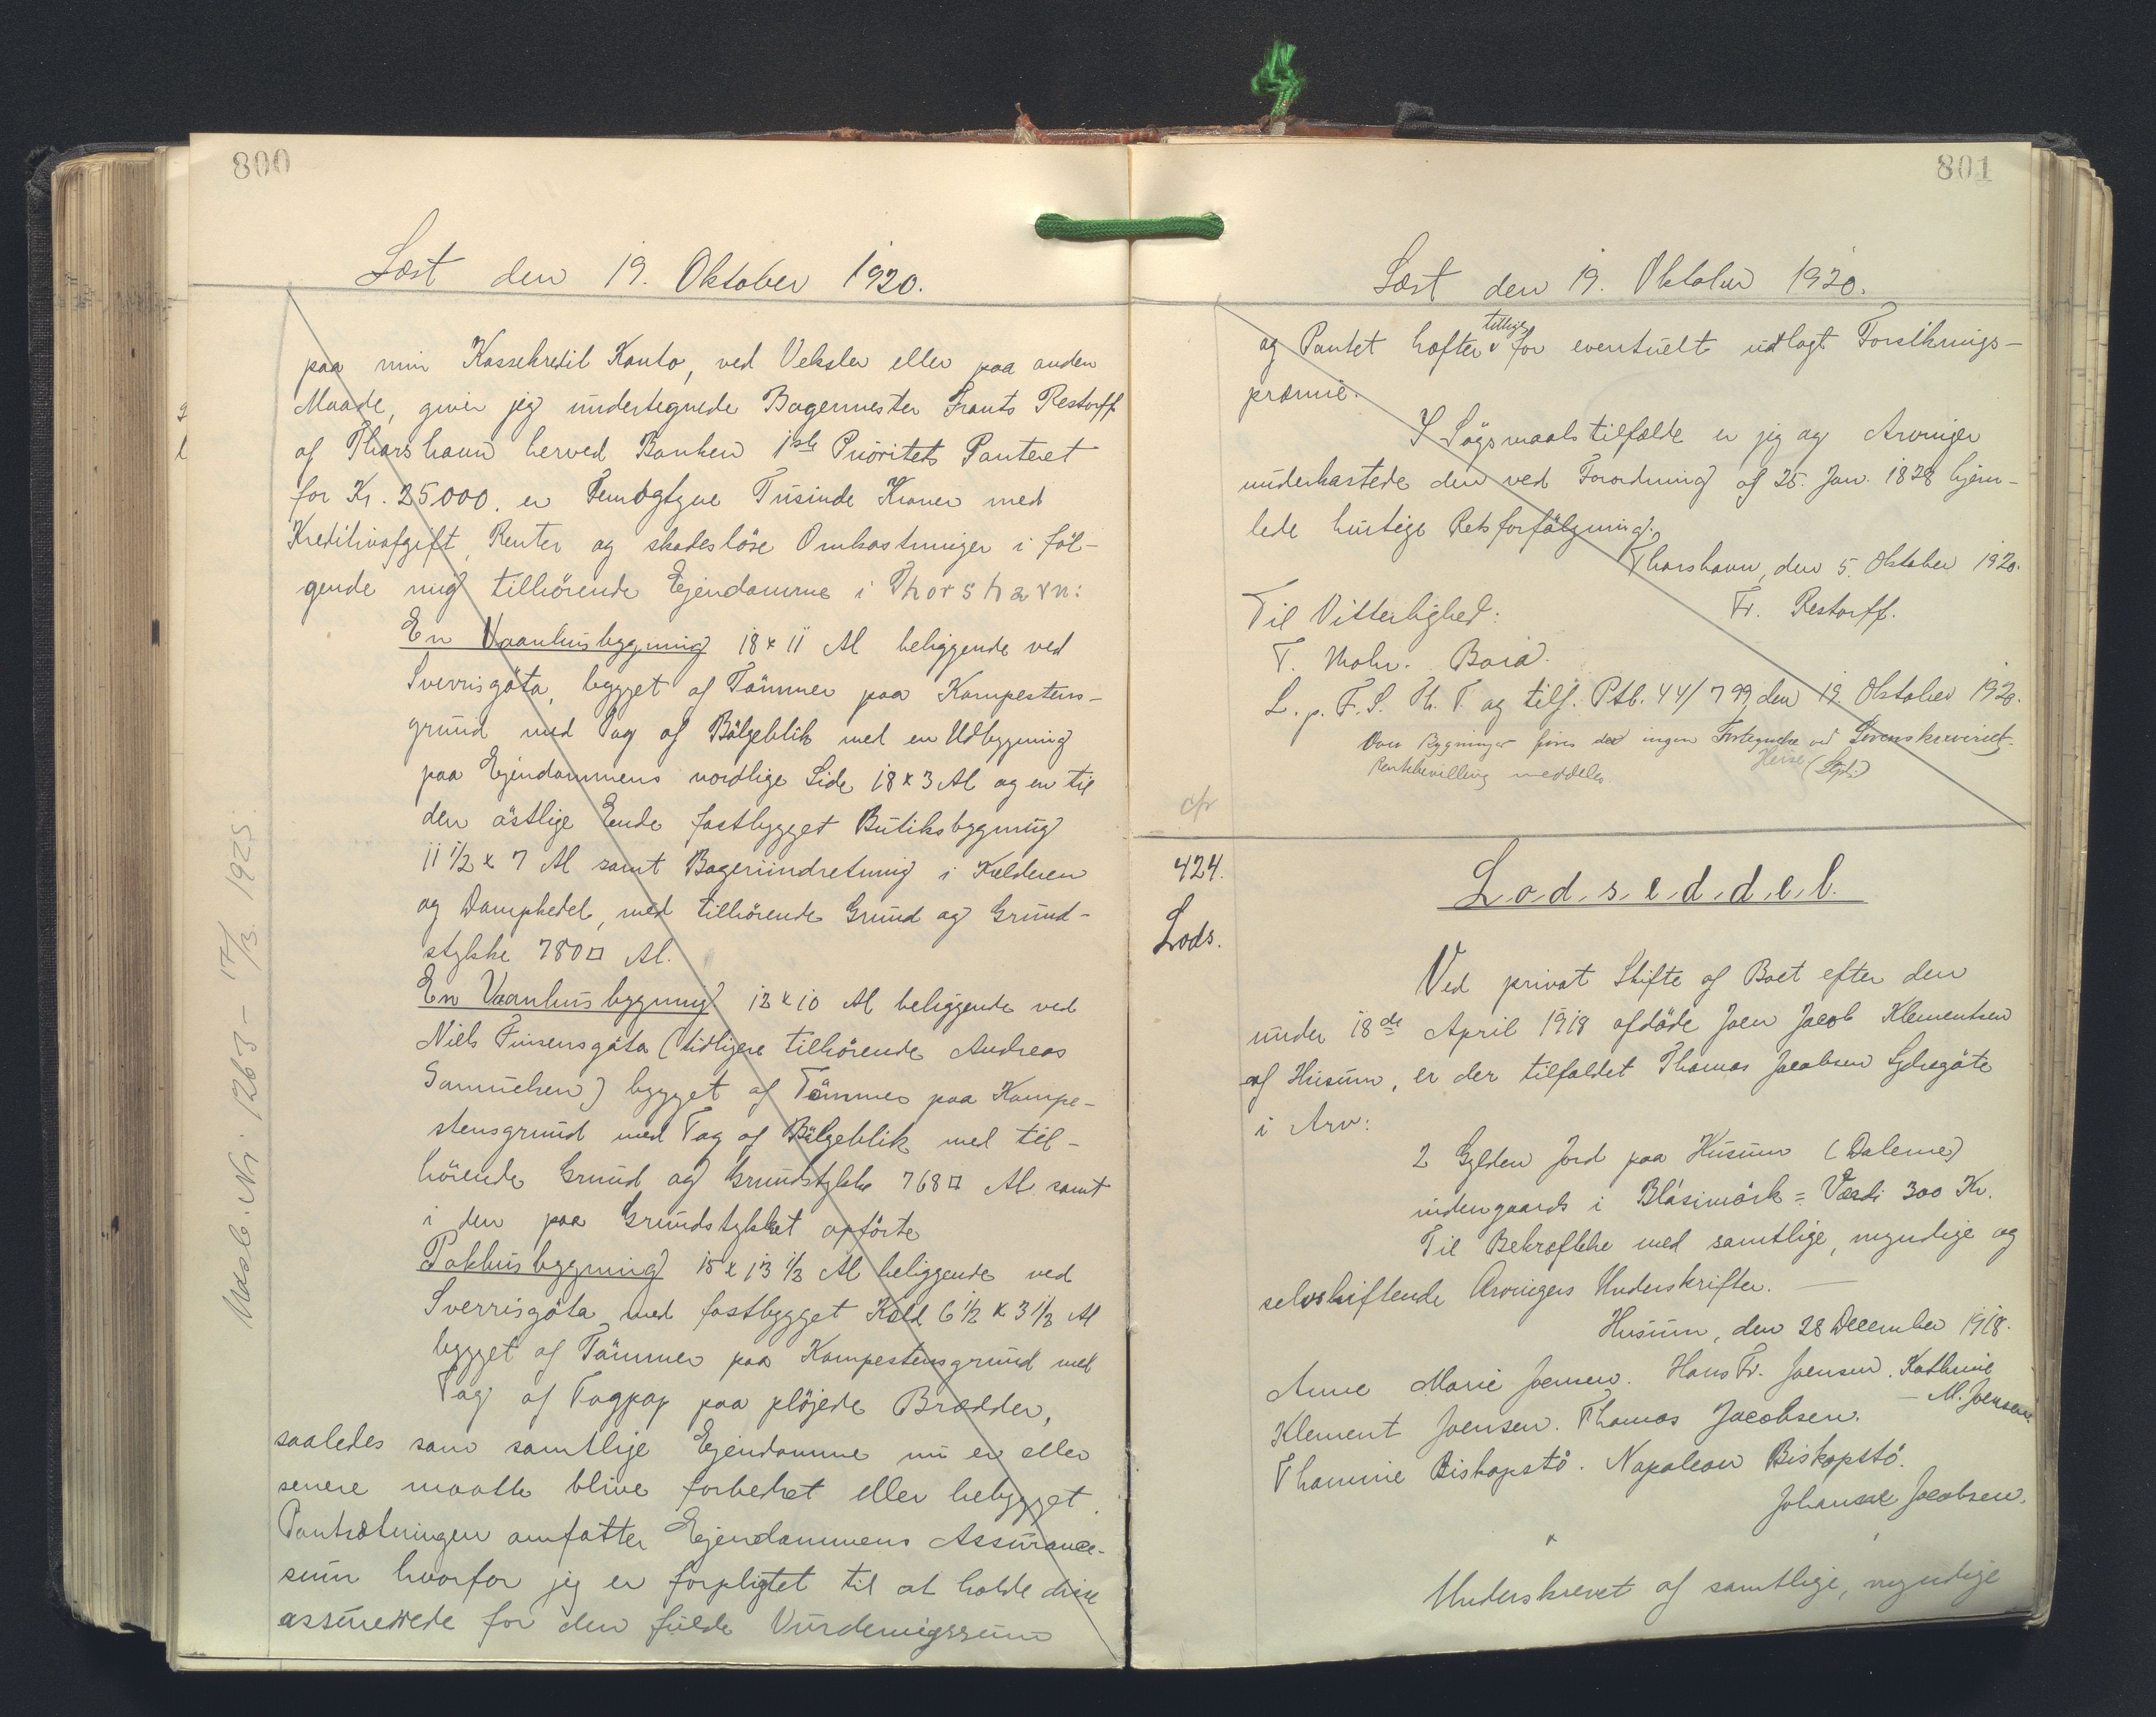 800
Læst den 19. Oktober 1920.
paa min Kassekredit Konto, ved Veksler eller paa anden
Maade, giver jeg undertegnede Bagermester Frants Restorff
af Thorshavn herved Banken 1ste Prioritets Panteret
for Kr. 25000. er Femogtyve Tusinde Kroner med
Kreditivafgift, Renter og skadesløse Omkostninger i føl-
gende mig tilhørende Ejendomme i Thorshavn:
En Vaanhusbygning 18 x 11 Al beliggende ved
Sverrisgöta, bygget af Tømmer paa Kampestens-
grund med Tag af Bølgeblik med en Udbygning
paa Ejendommens nordlige Side 18 x 3 Al og en til
den østlige Ende fastbygget Butiksbygning
11 1/2 x 7 Al samt Bageriindretning i Kælderen
og Dampkedel, med tilhørende Grund og Grund-
stykke 780 □ Al.
En Vaanhusbygning 12 x 10 Al beliggende ved
Niels Finsensgöta (tidligere tilhørende Andreas
Samuelsen) bygget af Tømmer paa Kampe-
stensgrund med Tag af Bølgeblik med til-
hørende Grund og Grundstykke 768 □ Al samt
i den paa Grundstykket opførte
Pakhusbygning 15 x 13 1/2 Al beliggende ved
Sverrisgöta med fastbygget 6 1/2 x 3 1/2 Al
bygget af Tømmer paa Kampestensgrund med
Tag af Tagpap paa pløjede Brædder,
saaledes som samtlige Ejendomme nu er eller
senere maatte blive forbedret eller bebygget.
Pantsætningen omfatter Ejendommens Assurance-
sum hvorfor jeg er forpligtet til at holde disse
assurerede for den fulde Vurderingssum
Udsl. Nr. 1263 - 17/3. 1925.
801
Læst den 19. Oktober 1920.
og Pantet hæfter tillige for eventuelt udlagt Forsikrings-
præmie.
I Søgsmaalstilfælde er jeg og Arvinger
underkastede den ved Forordning af 25. Jan. 1828 hjem-
lede hurtige Retsforfølgning.
Thorshavn, den 5. Oktober 1920.
Fr. Restorff.
Til Vitterlighed:
T. Mohr. Baia.
L. p. F. S. Th. T. og tilf. Ptb. 44/799, den 19. Oktober 1920.
Over Bygninger føres der ingen Fortegnelse ved Sorenskriveriet.
Rentebevilling meddeles
Heise (Stpl:)
cfr
424.
Lods.
Lodseddel.
Ved privat Skifte af Boet efter den
under 18de April 1918 afdøde Joen Jacob Klementsen
af Husum, er der tilfaldet Thomas Jacobsen Sydregöte
i Arv:
2 Gylden Jord paa Husum (Dalerne)
indengaards i Blásimörk = Værdi 300 Kr.
Til Bekræftelse med samtlige, myndige og
selvskiftende Arvingers Underskrifter.
Husum, den 28 December 1918.
Anne Marie Joensen. Hans Fr. Joensen. Kathrine
M. Joensen.
Klement Joensen. Thomas Jacobsen.
Thommine Biskopstö. Napoleon Biskopstö.
Johanne Jacobsen.
Underskrevet af samtlige, myndige